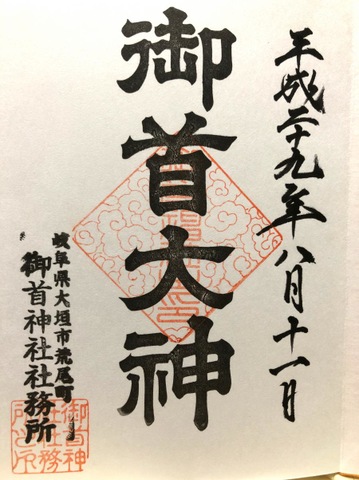 平成二十九年八月十一日
御首大神
岐阜県大垣市荒尾町
御首神社社務所
御首神
社社務
所之印